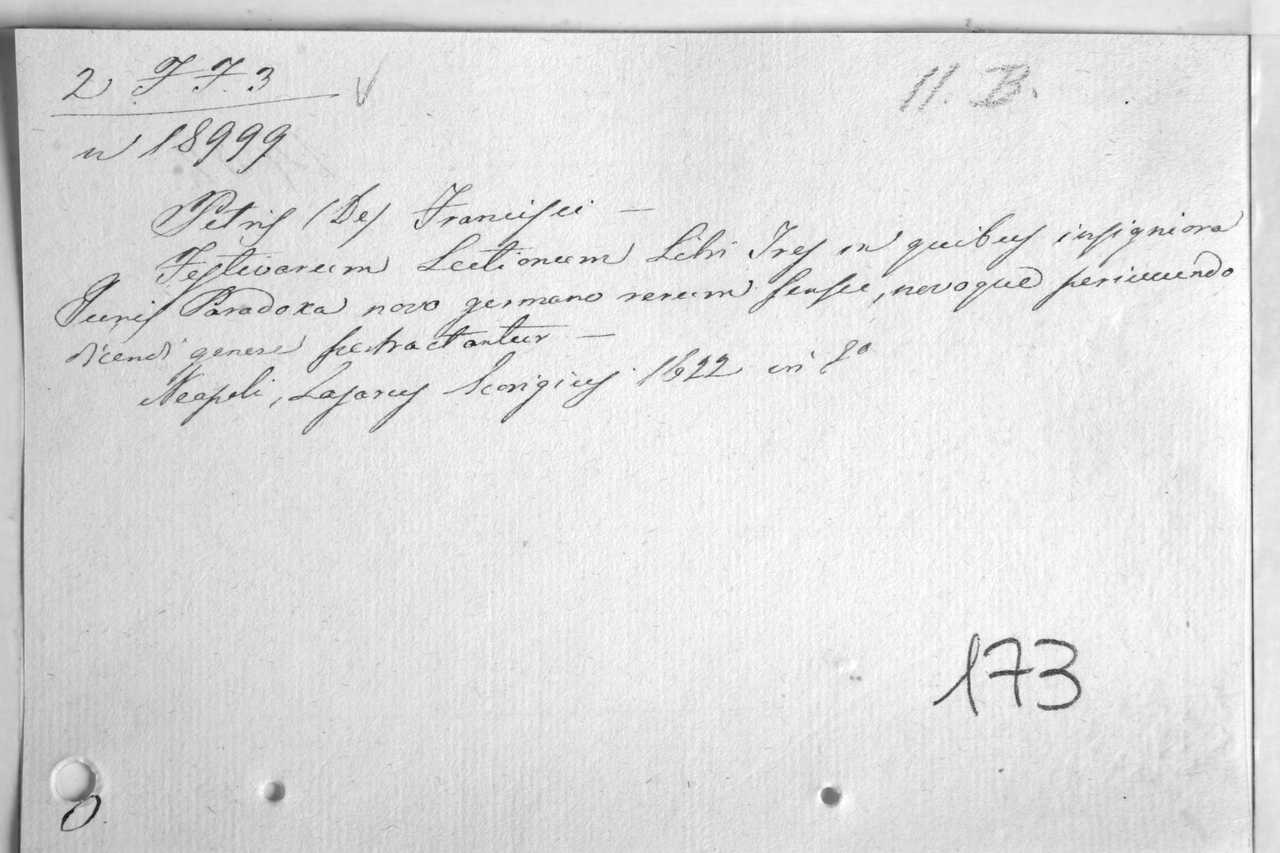 2 F. F. 3
11. B.
n 18999
Petris (De) Francisci —
Festivarum Lectionum Libri Tres in quibus insigniora
Juris Paradoxa novo germano rerum sensu, novoque periucundo
dicendi genere pertractantur —
Neapoli, Lazarus Scorigius 1622 in 8o
173
0.